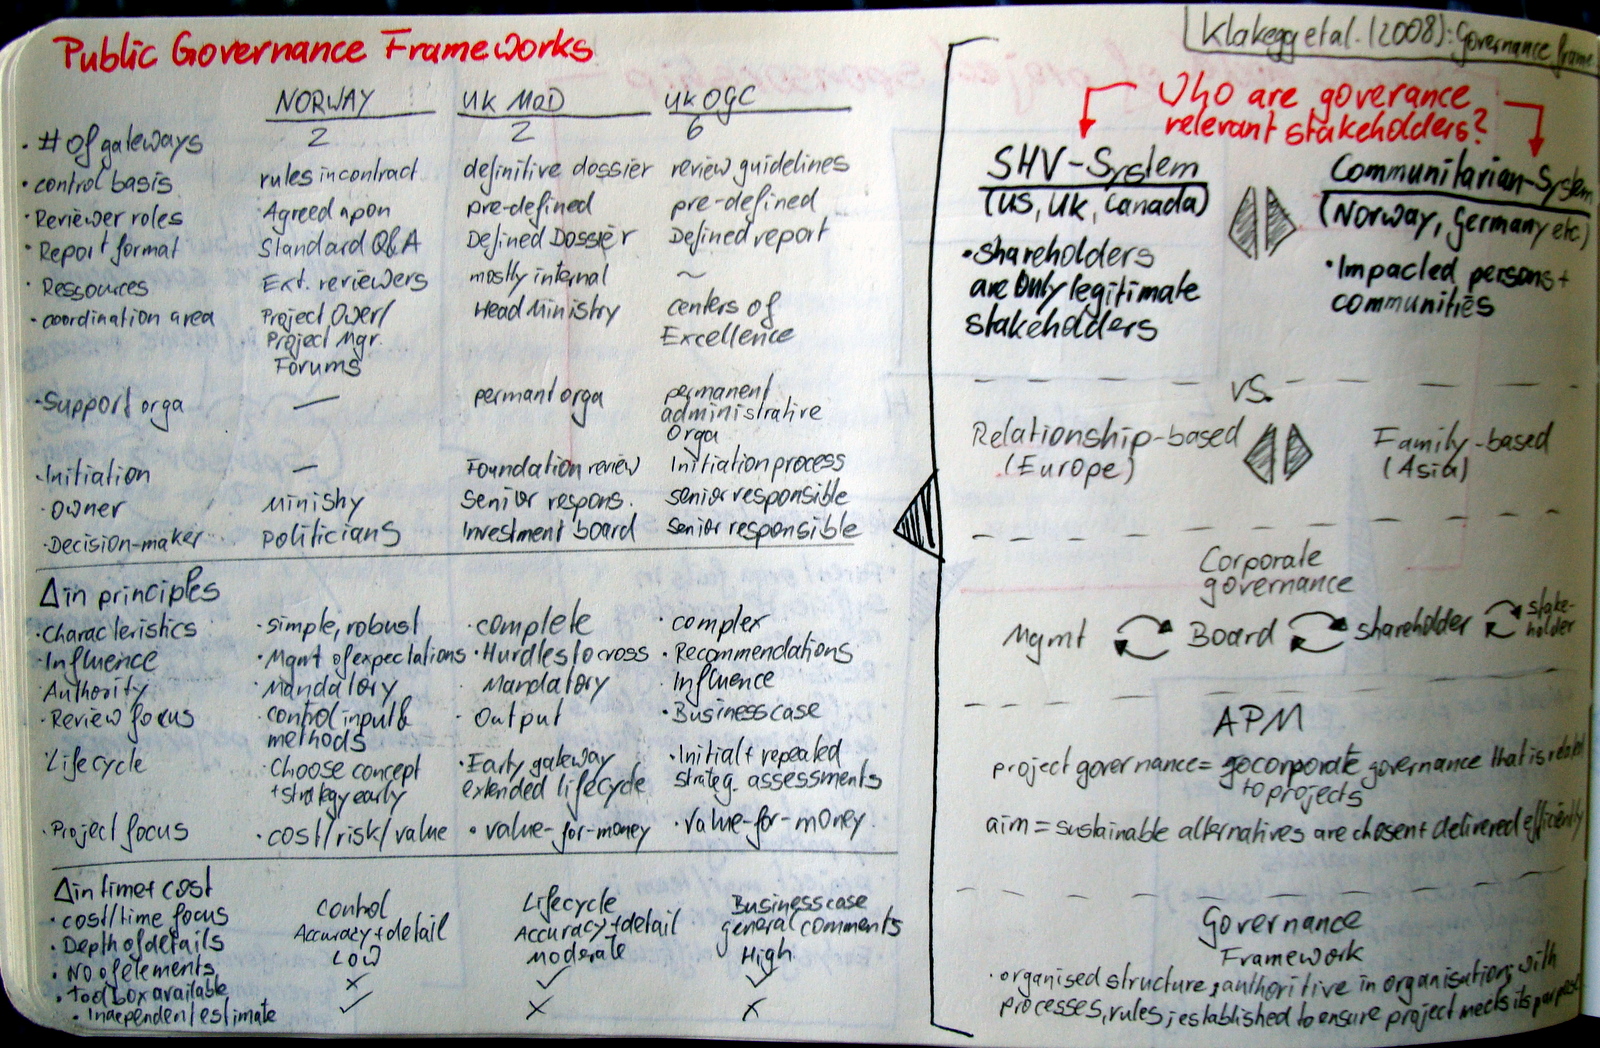 Public Governance Frameworks
NORWAY UK MoD UK OGC
· # of gateways 2 2 6
· control basis rules in contract definitive dossier review guidelines
· Reviewer roles Agreed upon pre-defined pre-defined
· Report format Standard Q&A Defined Dossier Defined report
· Ressources Ext. reviewers mostly internal ~
· coordination area Project Ower/ Head Ministry centers of
Project Mgr. Excellence
Forums
· Support orga — permant orga permanent
administrative
orga
· Initiation — Foundation review Initiation process
· Owner Ministry senior respons. senior responsible
· Decision-maker politicians Investment board senior responsible
Δ in principles
· Characteristics · simple, robust · complete · complex
· Influence · Mgmt of expectations · Hurdles to cross · Recommendations
· Authority · Mandatory · Mandatory · Influence
· Review focus · control input & · Output · Business case
methods
· Lifecycle · Choose concept · Early gateway · Initial + repeated
+ strategy early extended lifecycle strateg. assessments
· Project focus · cost/risk/value · value-for-money · value-for-money
Δ in time + cost
· cost/time focus Control Lifecycle Business case
· Depth of details Accuracy + detail Accuracy + detail general comments
· No of elements Low Moderate High
· Toolbox available × ✓ ✓
· Independent estimate ✓ × ×
Klakegg et al. (2008): Governance frame
Who are goverance
relevant stakeholders?
SHV-System Communitarian-System
(US, UK, Canada) (Norway, Germany etc)
· Shareholders · Impacted persons +
are only legitimate communities
stakeholders
vs.
Relationship-based Family-based
(Europe) (Asia)
Corporate
governance
Mgmt Board shareholder stake-
holder
APM
project governance = corporate governance that is related
to projects
aim = sustainable alternatives are chosen + delivered efficiently
Governance
Framework
· organised structure, authoritive in organisation, with
processes, rules; established to ensure project meets its purpose